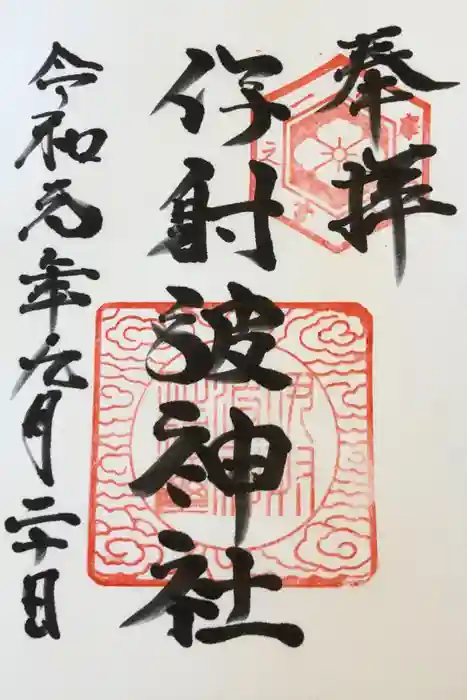 奉拝
伊射波神社
令和元年六月二十日